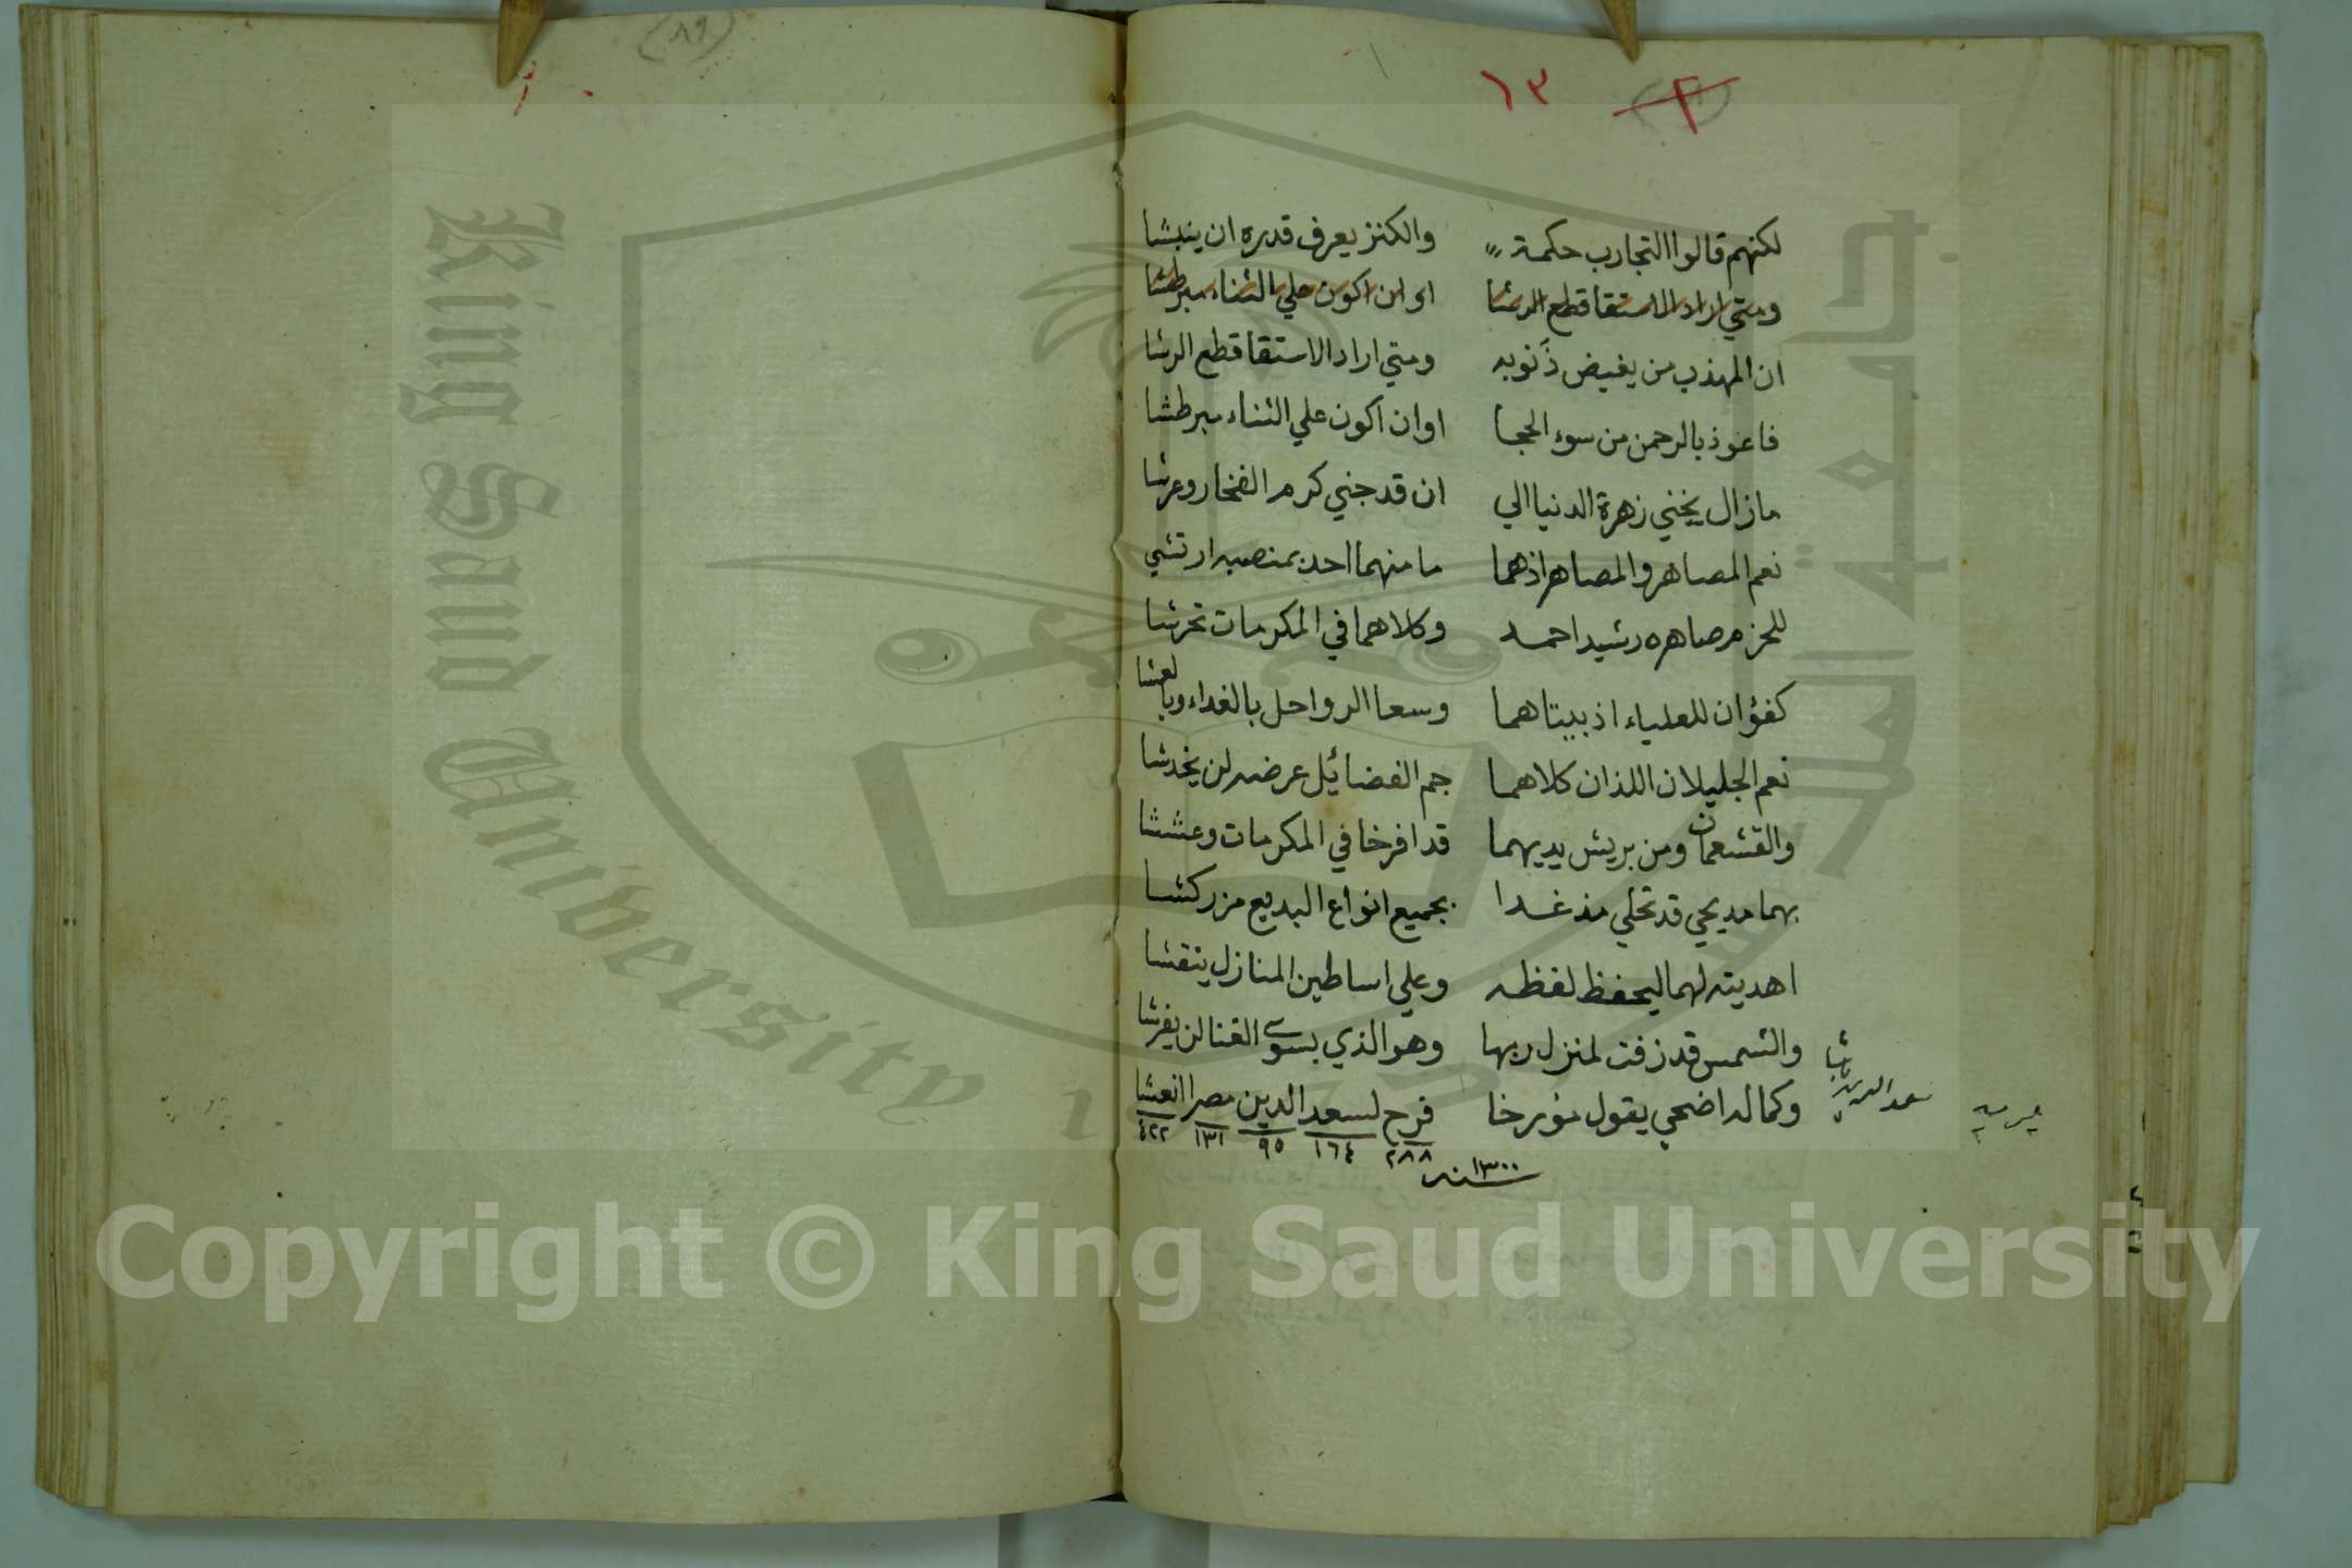 ١٣
لكنهم قالوا التجارب حكمة والكنز يعرف قدره ان ينبشا
ومتي اراد الاستقا قطع الرشا او ان اكون علي الثناء مبرطشا
ان المهذب من يغيض ذَنوبه ومتي اراد الاستقا قطع الرشا
فاعوذ بالرحمن من سوء الحجا اوان اكون علي الثناء مبرطشا
مازال زهرة الدنيا الي ان قد جني كرم الفخار وعرشا
نعم المصاهر والمصاهر اذهما ما منهما احد بمنصبه ارتشي
للحزم صاهره رشيد احمد وكلاهما في المكرمات تحرشا
كفؤان للعلياء اذ بيتاهما وسعا الرواحل بالغداء وبالعشا
نعم الجليلان اللذان كلاهما جم الفضائل عرضه لن يخدشا
والقشعمان ومن بريش يديهما قد افرخا في المكرمات وعششا
بهما مديحي قد تحلي مذ غدا بجميع انواع البديع مزركشا
اهديته لهما ليحفظ لفظه وعلي اساطين المنازل ينقشا
والشمس قد زفت لمنزل ربها وهو الذي بسوي القنا لن يفرشا
وكماله اضحي يقول مؤرخا فرح لسعد الدين مصرا انعشا
سعد الدين باشا
٢٨٨ ١٦٤ ٩٥ ١٣١ ٤٢٢
سنه ١٣٠٠
(٨٩)
King Saud University
جامعة الملك سعود
Copyright © King Saud University